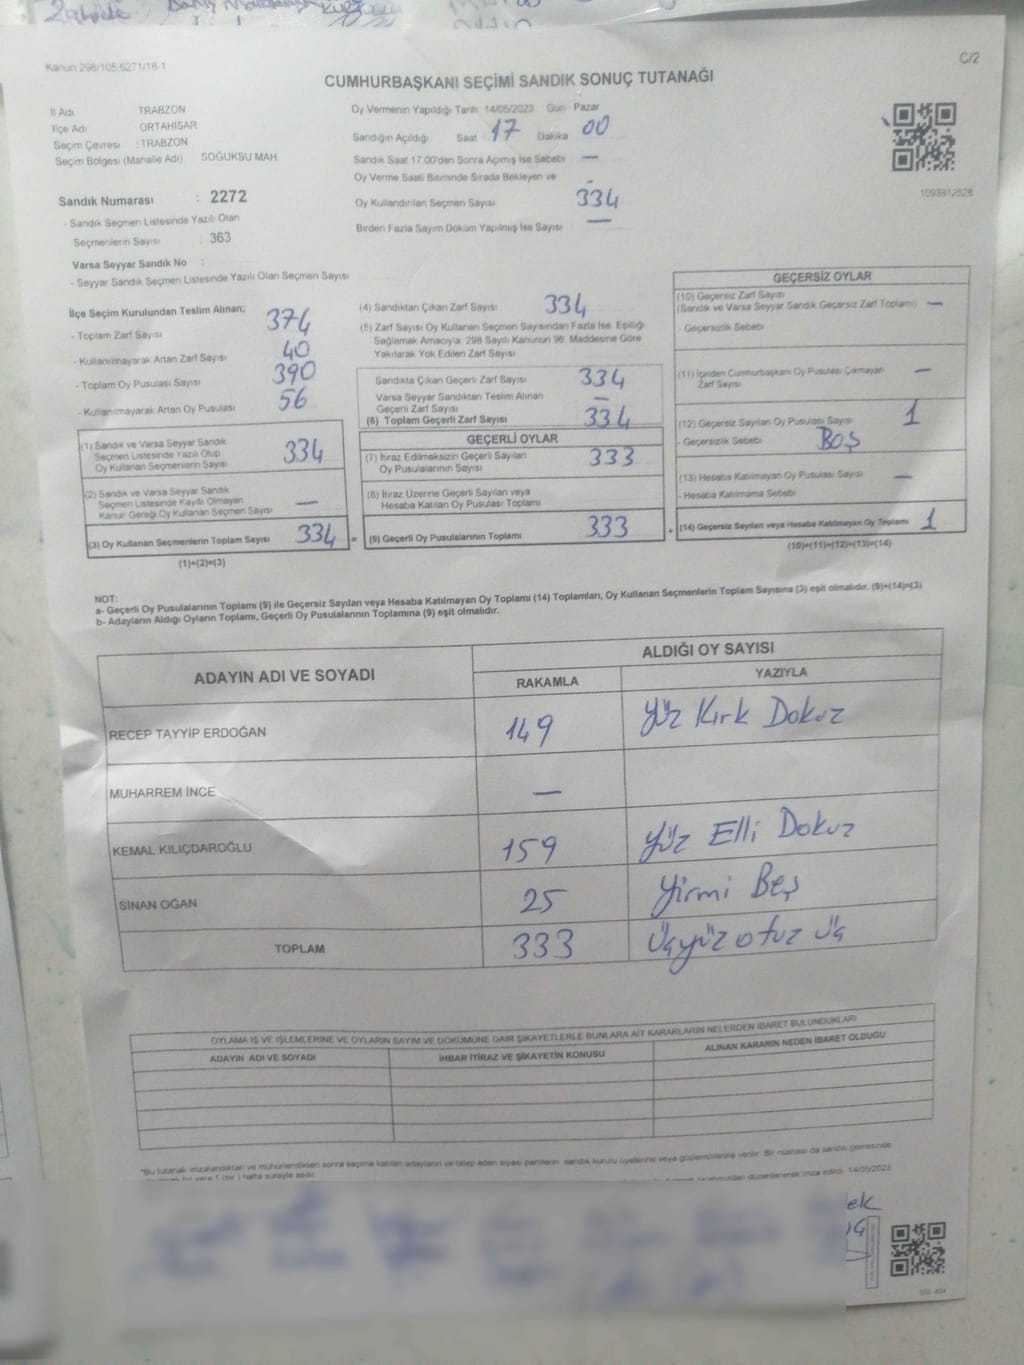 Kanun 298/105.6271/18-1
C/2
CUMHURBAŞKANI SEÇİMİ SANDIK SONUÇ TUTANAĞI
İl Adı TRABZON
İlçe Adı ORTAHİSAR
Seçim Çevresi : TRABZON
Seçim Bölgesi (Mahalle Adı) SOĞUKSU MAH.
Sandık Numarası : 2272
- Sandık Seçmen Listesinde Yazılı Olan
Seçmenlerin Sayısı : 363
Varsa Seyyar Sandık No :
- Seyyar Sandık Seçmen Listesinde Yazılı Olan Seçmen Sayısı
Oy Vermenin Yapıldığı Tarih 14/05/2023 Gün Pazar
Sandığın Açıldığı Saat 17 Dakika 00
Sandık Saat 17.00'den Sonra Açılmış İse Sebebi —
Oy Verme Saati Bitiminde Sırada Bekleyen ve
Oy Kullandırılan Seçmen Sayısı 334
Birden Fazla Sayım Döküm Yapılmış İse Sayısı —
1093812528
İlçe Seçim Kurulundan Teslim Alınan;
- Toplam Zarf Sayısı 374
- Kullanılmayarak Artan Zarf Sayısı 40
- Toplam Oy Pusulası Sayısı 390
- Kullanılmayarak Artan Oy Pusulası 56
(1) Sandık ve Varsa Seyyar Sandık
Seçmen Listesinde Yazılı Olup
Oy Kullanan Seçmenlerin Sayısı 334
(2) Sandık ve Varsa Seyyar Sandık
Seçmen Listesinde Kayıtlı Olmayan
Kanun Gereği Oy Kullanan Seçmen Sayısı —
(3) Oy Kullanan Seçmenlerin Toplam Sayısı 334 =
(1)+(2)=(3)
(4) Sandıktan Çıkan Zarf Sayısı 334
(5) Zarf Sayısı Oy Kullanan Seçmen Sayısından Fazla İse, Eşitliği
Sağlamak Amacıyla, 298 Sayılı Kanunun 98. Maddesine Göre
Yakılarak Yok Edilen Zarf Sayısı
Sandıkta Çıkan Geçerli Zarf Sayısı 334
Varsa Seyyar Sandıktan Teslim Alınan
Geçerli Zarf Sayısı —
(6) Toplam Geçerli Zarf Sayısı 334
GEÇERLİ OYLAR
(7) İtiraz Edilmeksizin Geçerli Sayılan
Oy Pusulalarının Sayısı 333
(8) İtiraz Üzerine Geçerli Sayılan veya
Hesaba Katılan Oy Pusulası Toplamı
(9) Geçerli Oy Pusulalarının Toplamı 333 +
GEÇERSİZ OYLAR
(10) Geçersiz Zarf Sayısı
(Sandık ve Varsa Seyyar Sandık Geçersiz Zarf Toplamı) —
- Geçersizlik Sebebi
(11) İçinden Cumhurbaşkanı Oy Pusulası Çıkmayan
Zarf Sayısı —
(12) Geçersiz Sayılan Oy Pusulası Sayısı 1
- Geçersizlik Sebebi BOŞ
(13) Hesaba Katılmayan Oy Pusulası Sayısı —
- Hesaba Katılmama Sebebi
(14) Geçersiz Sayılan veya Hesaba Katılmayan Oy Toplamı 1
(10)+(11)+(12)+(13)=(14)
NOT:
a- Geçerli Oy Pusulalarının Toplamı (9) ile Geçersiz Sayılan veya Hesaba Katılmayan Oy Toplamı (14) Toplamları, Oy Kullanan Seçmenlerin Toplam Sayısına (3) eşit olmalıdır. (9)+(14)=(3)
b- Adayların Aldığı Oyların Toplamı, Geçerli Oy Pusulalarının Toplamına (9) eşit olmalıdır.
ADAYIN ADI VE SOYADI
ALDIĞI OY SAYISI
RAKAMLA YAZIYLA
RECEP TAYYİP ERDOĞAN 149 Yüz Kırk Dokuz
MUHARREM İNCE —
KEMAL KILIÇDAROĞLU 159 Yüz Elli Dokuz
SİNAN OĞAN 25 Yirmi Beş
TOPLAM 333 Üçyüz otuz üç
OYLAMA İŞ VE İŞLEMLERİNE VE OYLARIN SAYIM VE DÖKÜMÜNE DAİR ŞİKAYETLERLE BUNLARA AİT KARARLARIN NELERDEN İBARET BULUNDUKLARI
ADAYIN ADI VE SOYADI İHBAR İTİRAZ VE ŞİKAYETİN KONUSU ALINAN KARARIN NEDEN İBARET OLDUĞU
*Bu tutanak imzalandıktan ve mühürlendikten sonra seçime katılan adayların ve talep eden siyasi partilerin, sandık kurulu üyelerine veya gözlemcilerine verilir. Bir nüshası da sandık çevresinde